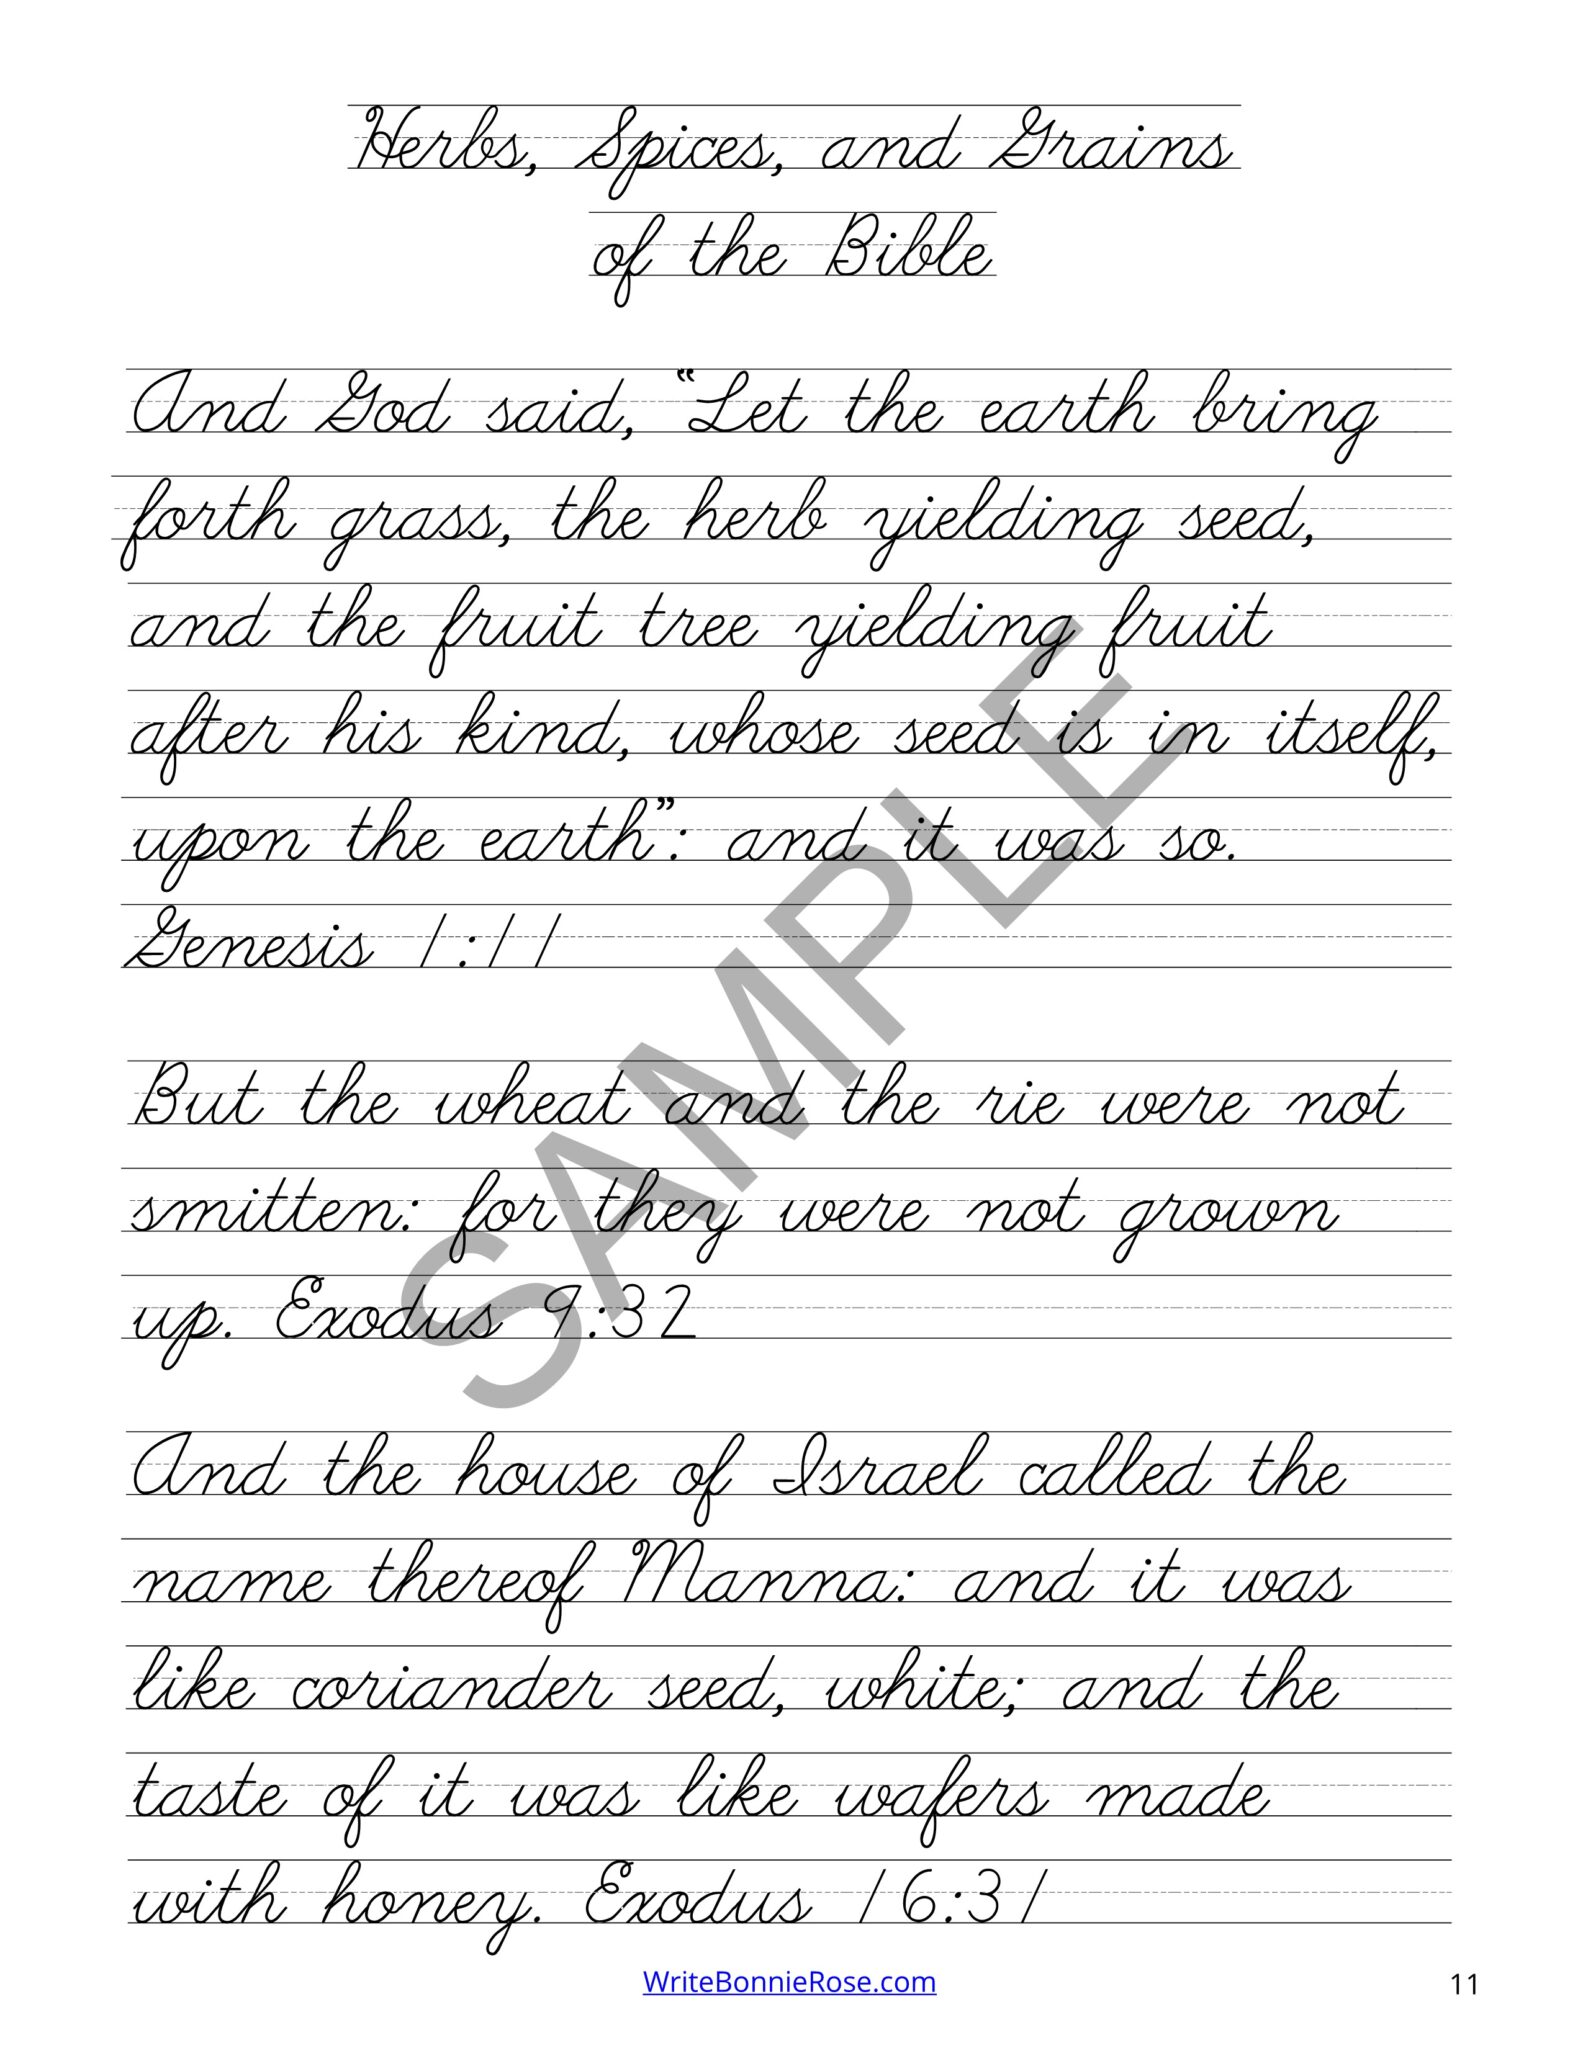 Herbs, Spices, and Grains
of the Bible
And God said, “Let the earth bring
forth grass, the herb yielding seed,
and the fruit tree yielding fruit
after his kind, whose seed is in itself,
upon the earth”: and it was so.
Genesis 1:11
But the wheat and the rie were not
smitten: for they were not grown
up. Exodus 9:32
And the house of Israel called the
name thereof Manna: and it was
like coriander seed, white; and the
taste of it was like wafers made
with honey. Exodus 16:31
SAMPLE
WriteBonnieRose.com
11